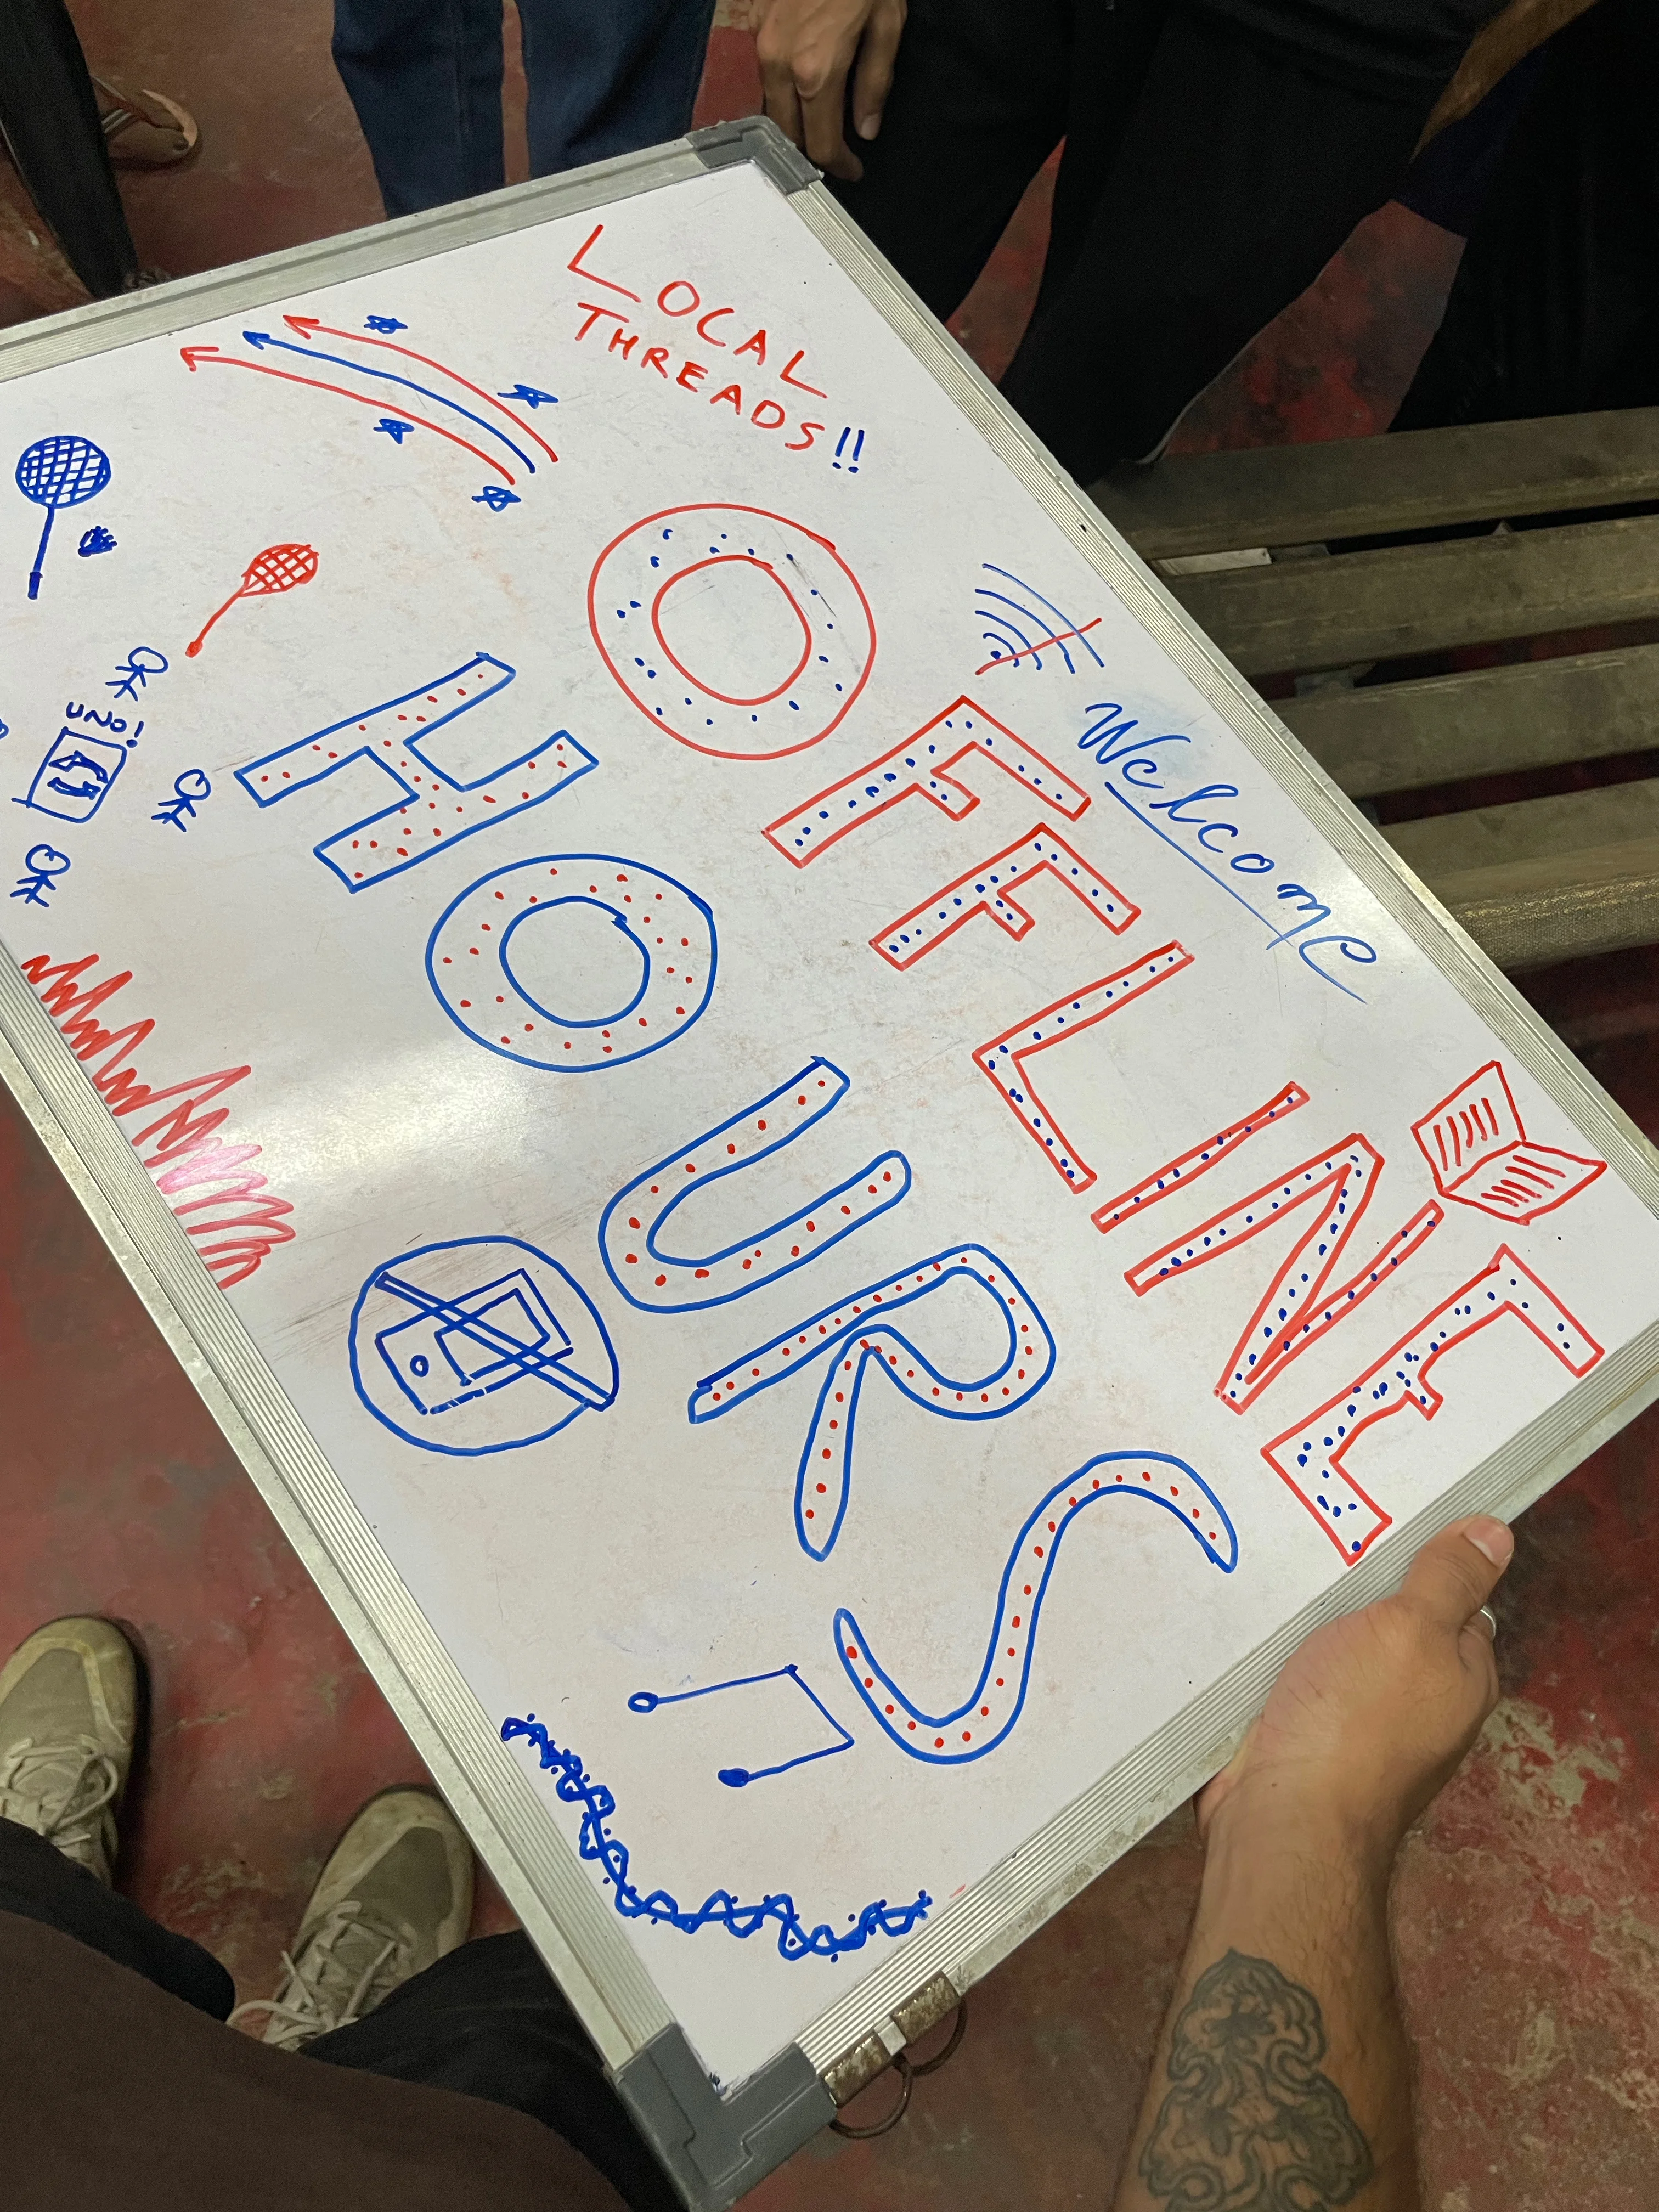 Welcome
LOCAL
THREADS!!
OFFLINE
HOURS
UNO!